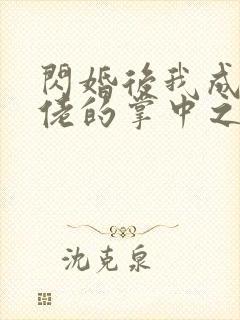 閃婚後我成
佬的掌中之
沈克泉